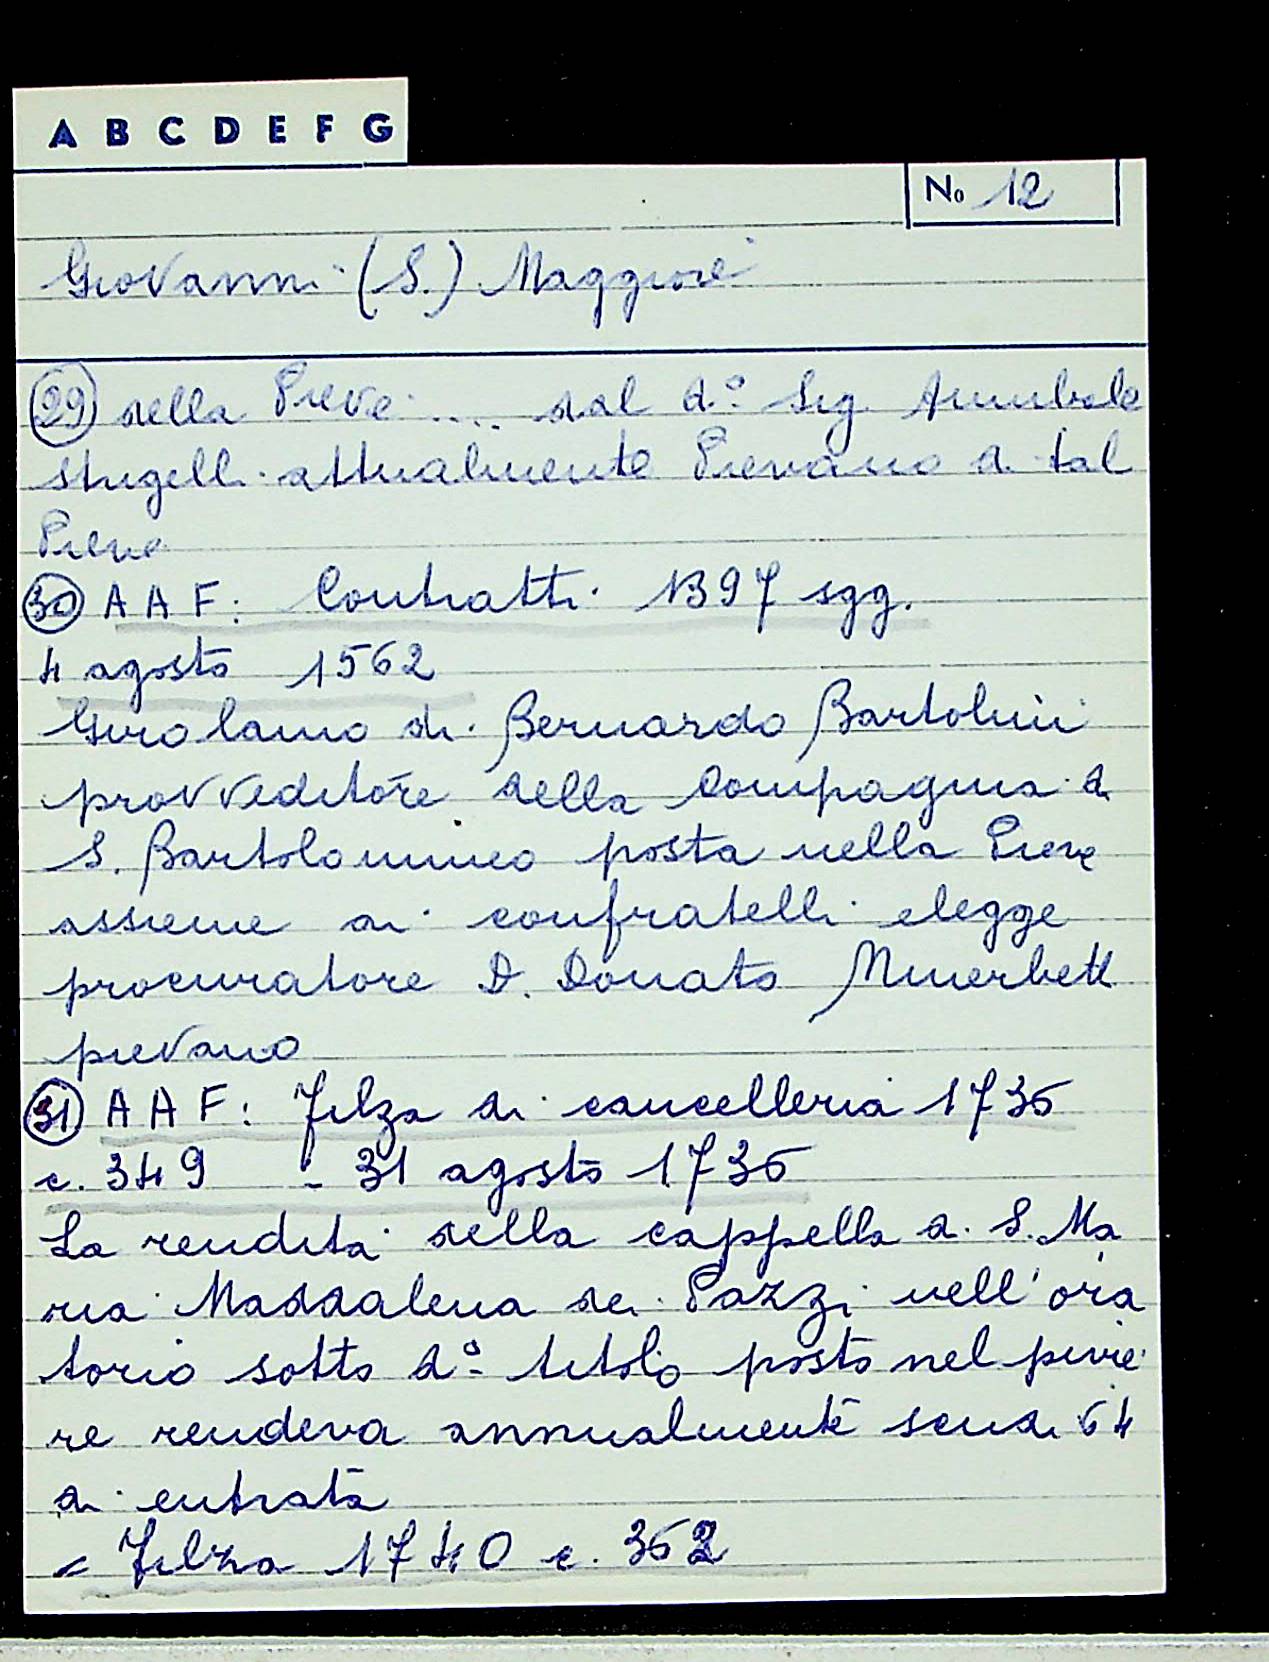 A B C D E F G
No 12
Giovanni (S.) Maggiore
(29) della Pieve .... dal d.º Sig. Annibale
Strigelli attualmente Pievano di tal
Pieve
(30) A A F: Contratti 1397 sgg.
4 agosto 1562
Girolamo di Bernardo Bartolini
provveditore della compagnia di
S. Bartolommeo posta nella Pieve
assieme ai confratelli elegge
procuratore D. Donato Minerbetti
pievano
(31) A A F: Filza di cancelleria 1736
c. 349 - 31 agosto 1736
La rendita della cappella di S. Ma
ria Maddalena dei Pazzi nell'ora
torio sotto d.º titolo posto nel pivie
re rendeva annualmente scudi 64
di entrata
= Filza 1740 c. 362